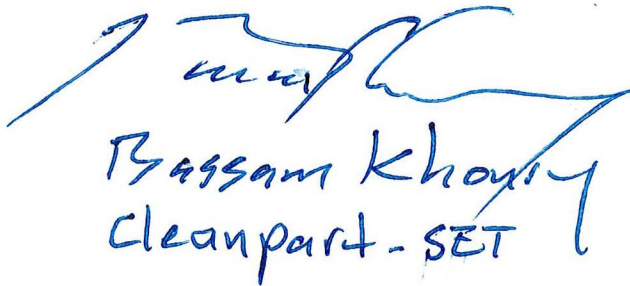 Bassam Khoury
Cleanpart - SET